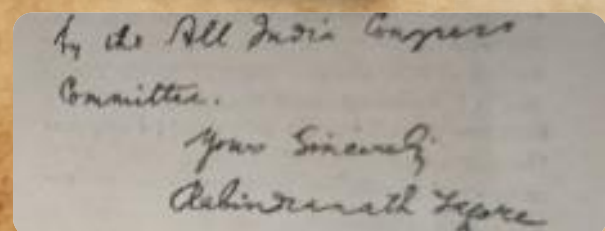 by the All India Congress
Committee.
Yours Sincerely
Rabindranath Tagore